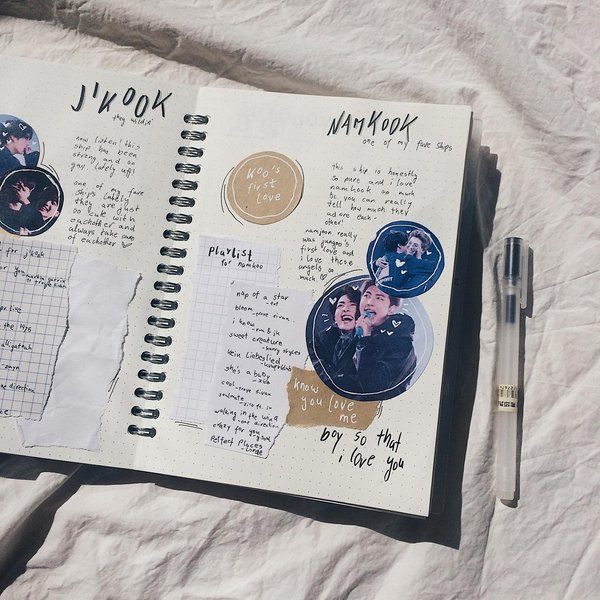 J'KOOK
they wildin'
now listen! this
ship has been
strong and so
gay lately uff!
one of my fave
ships lately
they are just
so cute with
eachother and
always take care
of eachother
for jikook
one direction
NAMKOOK
one of my fave ships
Koo's
first
love
this ship is honestly
so pure and i love
namkook so much
bc you can really
tell how much they
adore each-
other!
namjoon really
was jungoo's
first love and
i love these
angels so
much
playlist
for namkoo
nap of a star
-txt
bloom -troye sivan
i know -rm & jk
sweet creature
-harry styles
kein Liebeslied
-kraftklub
she's a baby
-zico
cool -troye sivan
soulmate
-zico ft. iu
walking in the wind
-one direction
crazy for you
Perfect Places
-Lorde
know
you love
me
boy so that
i love you